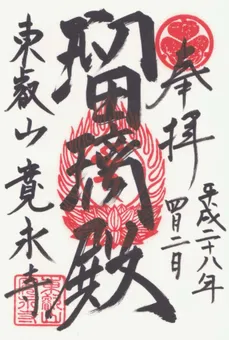 奉拝
平成二十八年
四月二日
瑠璃殿
東叡山 寛永寺